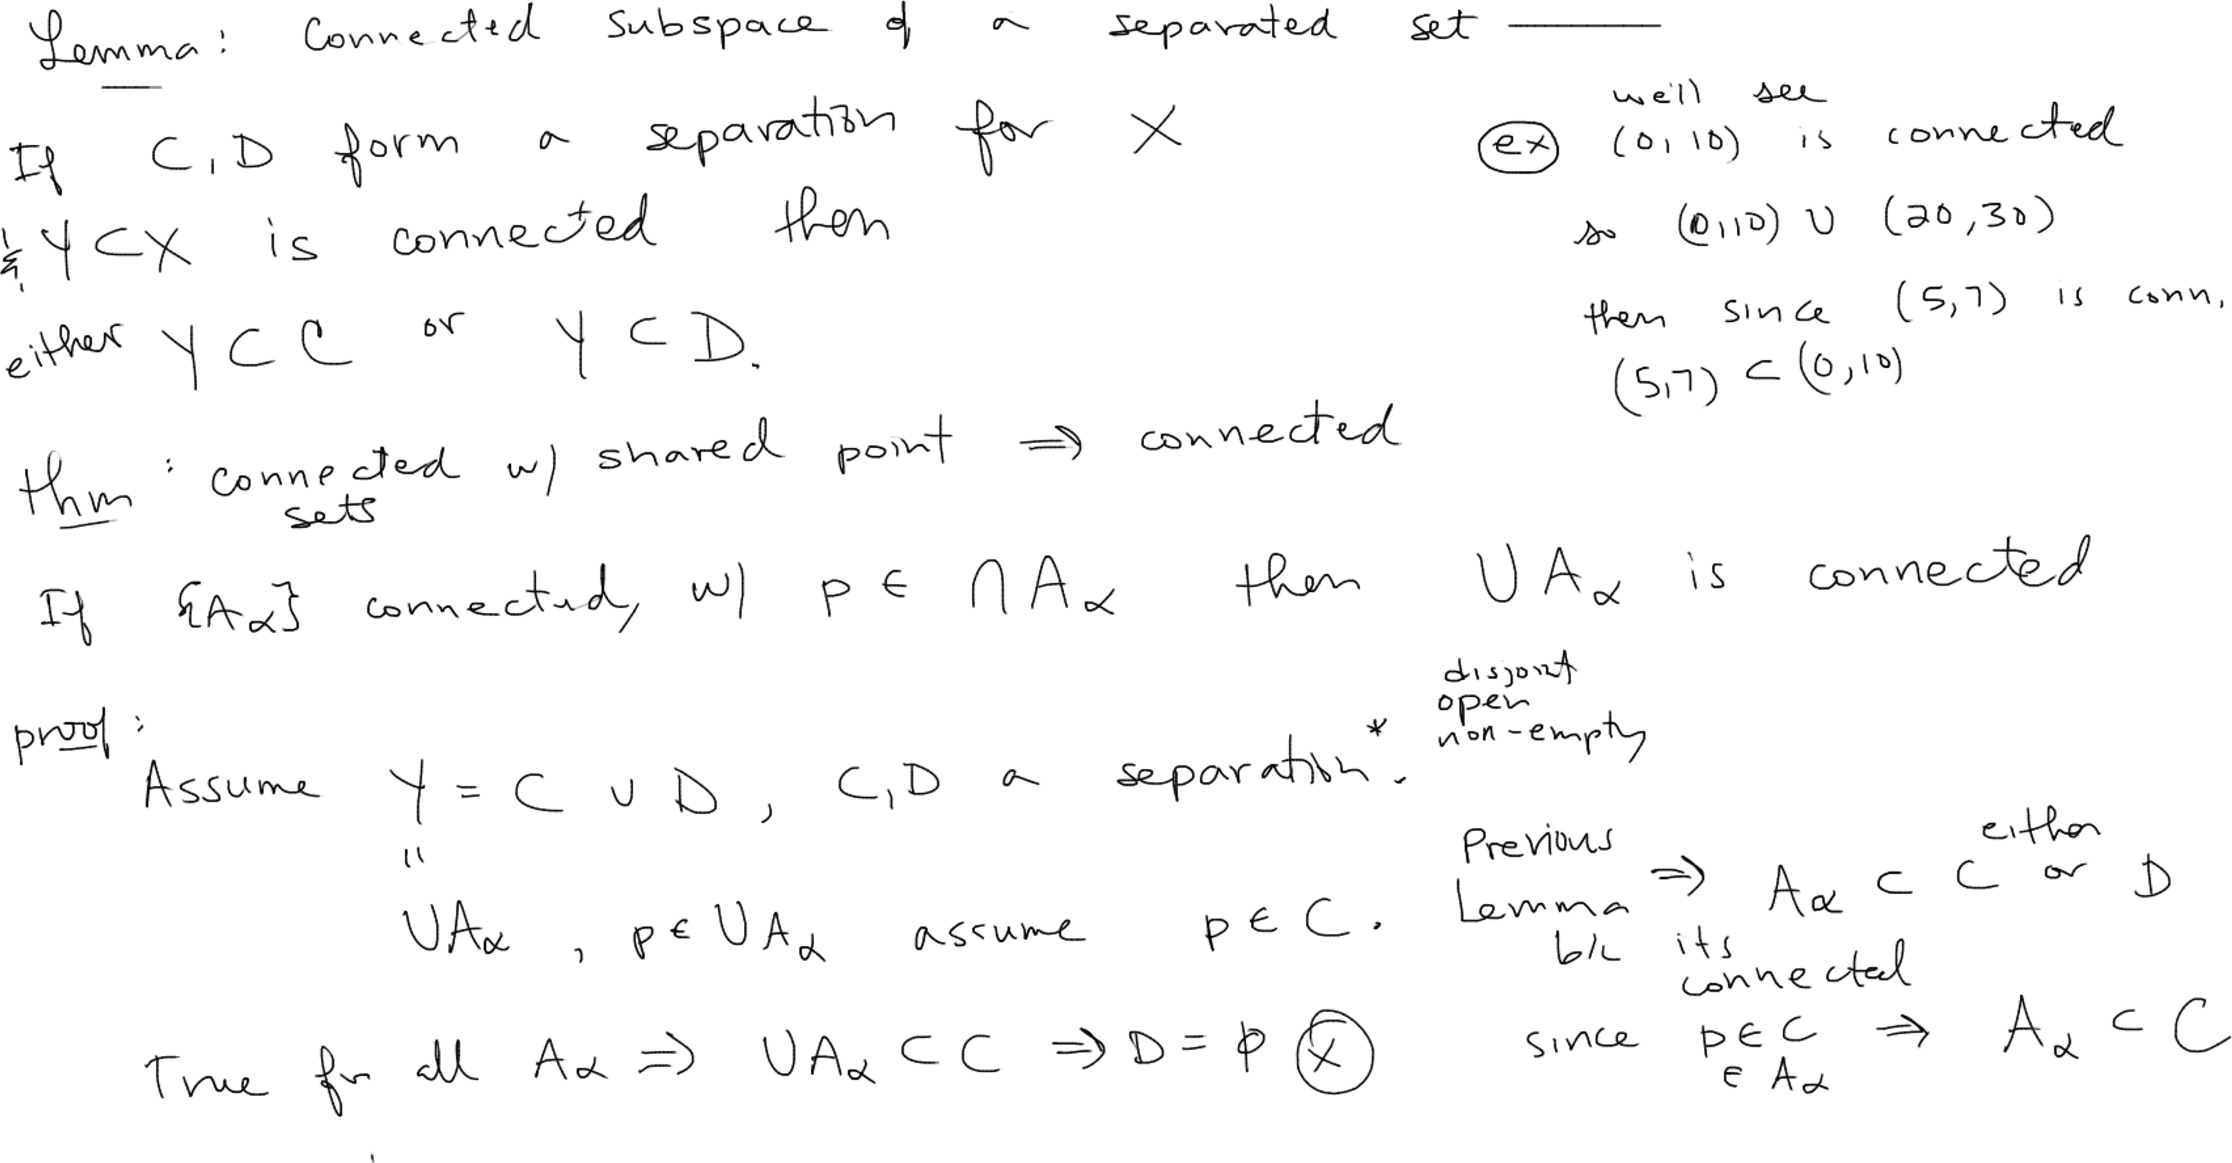 Lemma: Connected subspace of a separated set
If C, D form a separation for X
& Y ⊂ X is connected then
either Y ⊂ C or Y ⊂ D.
ex we'll see
(0,10) is connected
so (0,10) ∪ (20,30)
then since (5,7) is conn.
(5,7) ⊂ (0,10)
thm: connected sets w/ shared point ⇒ connected
If {Aα} connected, w/ p ∈ ∩Aα then ∪Aα is connected
proof:
Assume Y = C ∪ D, C,D a separation.*
disjoint
open
non-empty
"
∪Aα, p ∈ ∪Aα assume p ∈ C.
Previous Lemma ⇒ Aα ⊂ C either or D
b/c its
connected
since p ∈ C ⇒ Aα ⊂ C
∈ Aα
True for all Aα ⇒ ∪Aα ⊂ C ⇒ D = ϕ X